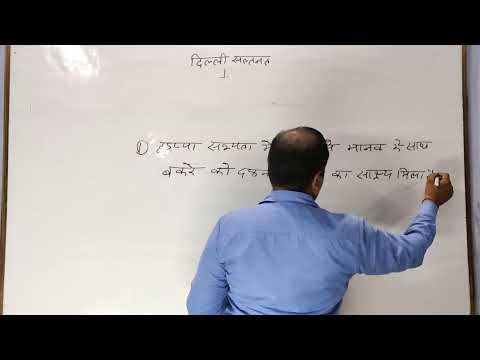 दिल्ली सल्तनत
1
① हड़प्पा सभ्यता में मानव के साथ
बकरे को दफन का साक्ष्य मिला